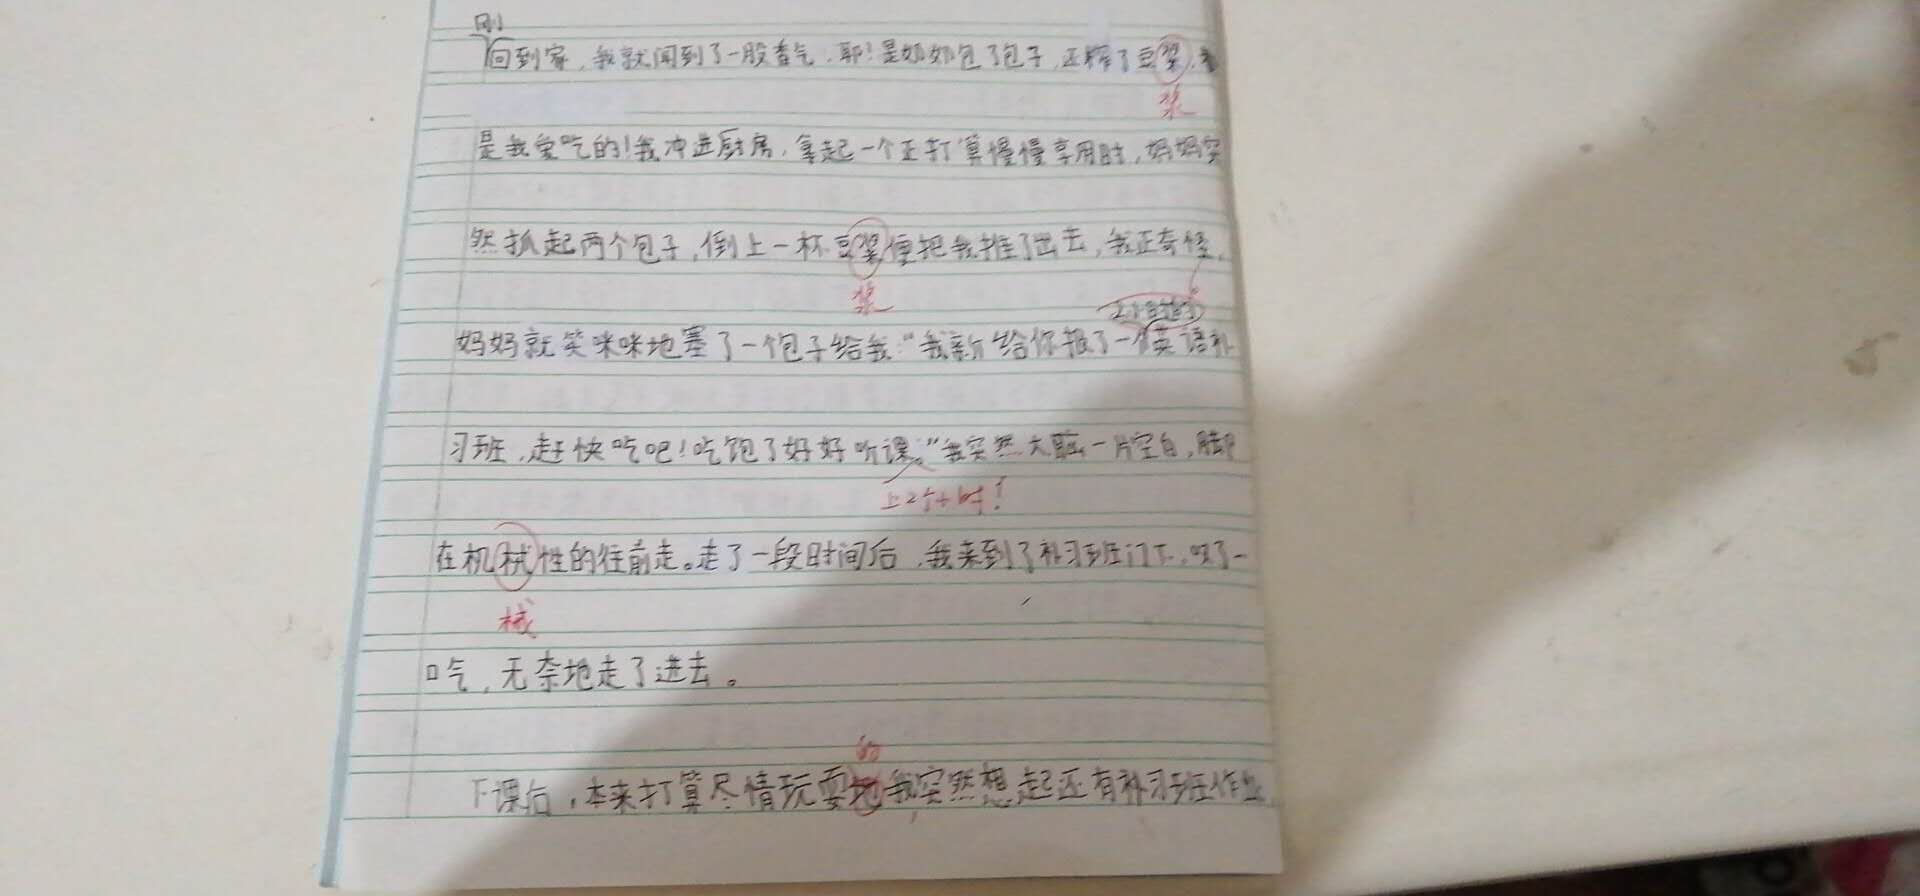 刚
回到家，我就闻到了一股香气，耶！是奶奶包了包子，还榨了豆浆，
浆
是我爱吃的！我冲进厨房，拿起一个正打算慢慢享用时，妈妈突
然抓起两个包子，倒上一杯豆浆便把我推了出去，我正奇怪，
浆
妈妈就笑咪咪地塞了一个包子给我：“我新给你报了一个英语补
习班，赶快吃吧！吃饱了好好听课。”我突然大脑一片空白，脚
上2个小时！
在机械性的往前走。走了一段时间后，我来到了补习班门下，叹了一
械
口气，无奈地走了进去。
的
下课后，本来打算尽情玩耍地我突然想起还有补习班作业